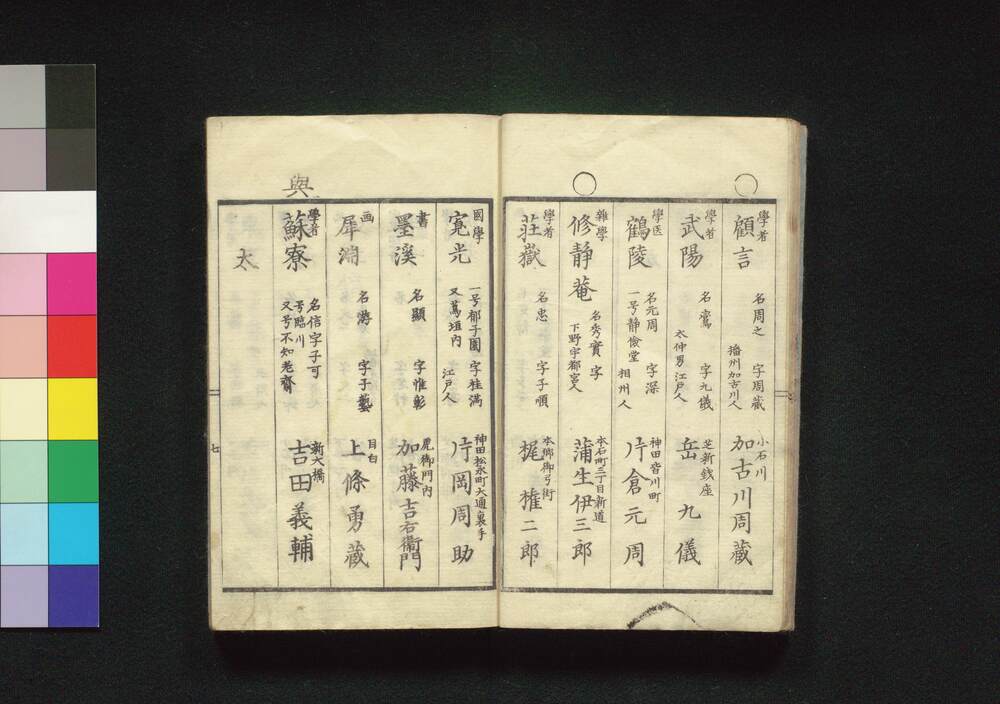 學者 顧言 名周之 字周蔵 播州加古川人 小石川 加古川周蔵
學者 武陽 名鸞 字九儀 太仲男 江戸人 芝新銭座 岳九儀
學医 鶴陵 名元周 字深 一号静儉堂 相州人 神田皆川町 片倉元周
雜學 修静菴 名秀實 字 下野宇都宮人 本石町三丁目新道 蒲生伊三郎
學者 荘嶽 名忠 字子順 本郷御弓街 梶権二郎
國學 寛光 一号郁子園 字桂満 又蔦垣内 江戸人 神田松永町大通裏手 片岡周助
書 墨溪 名顯 字惟彰 御門内 加藤吉右衞門
画 犀淵 名游 字子藝 目白 上條勇蔵
與
學者 蘇寮 名信字子可 号臨川 又号不知老齋 新大橋 吉田義輔
太
七